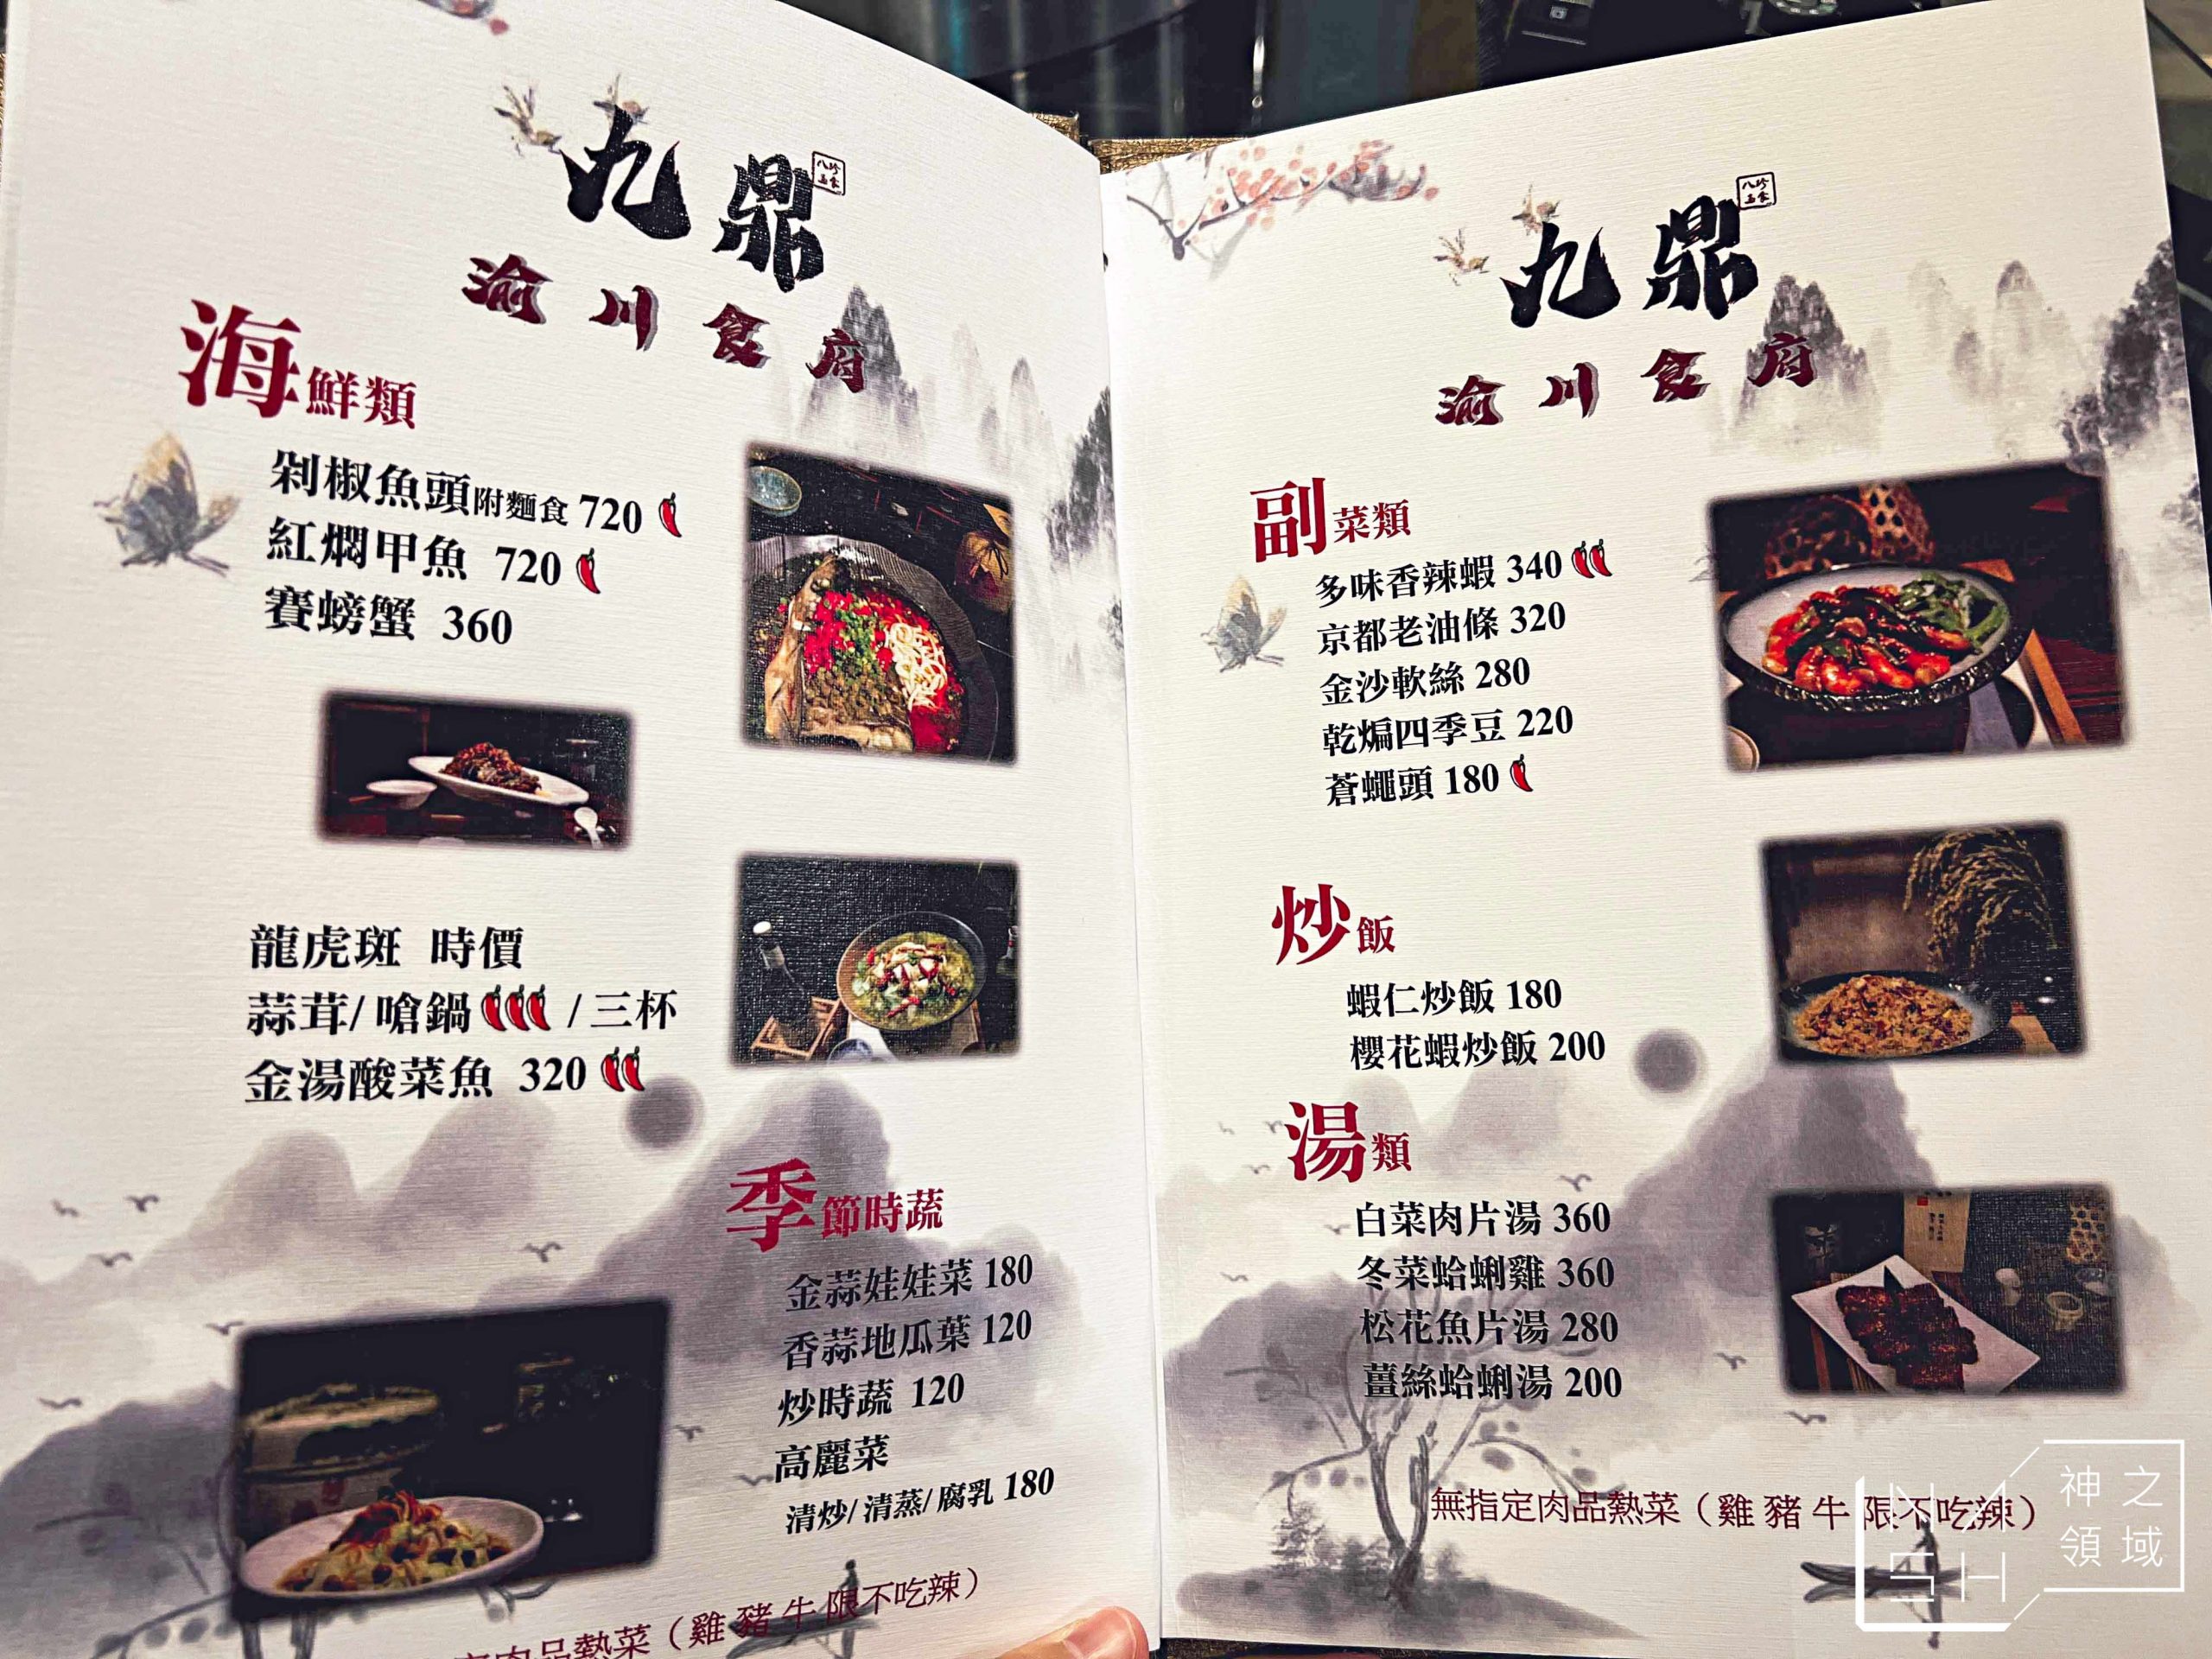 九鼎
八珍
玉食
渝川食府
海鮮類
剁椒魚頭附麵食 720
紅燜甲魚 720
賽螃蟹 360
龍虎斑 時價
蒜茸/嗆鍋 /三杯
金湯酸菜魚 320
季節時蔬
金蒜娃娃菜 180
香蒜地瓜葉 120
炒時蔬 120
高麗菜
清炒/清蒸/腐乳 180
肉品熱菜（雞 豬 牛 限不吃辣）
九鼎
八珍
玉食
渝川食府
副菜類
多味香辣蝦 340
京都老油條 320
金沙軟絲 280
乾煸四季豆 220
蒼蠅頭 180
炒飯
蝦仁炒飯 180
櫻花蝦炒飯 200
湯類
白菜肉片湯 360
冬菜蛤蜊雞 360
松花魚片湯 280
薑絲蛤蜊湯 200
無指定肉品熱菜（雞 豬 牛 限不吃辣）
神之
領域